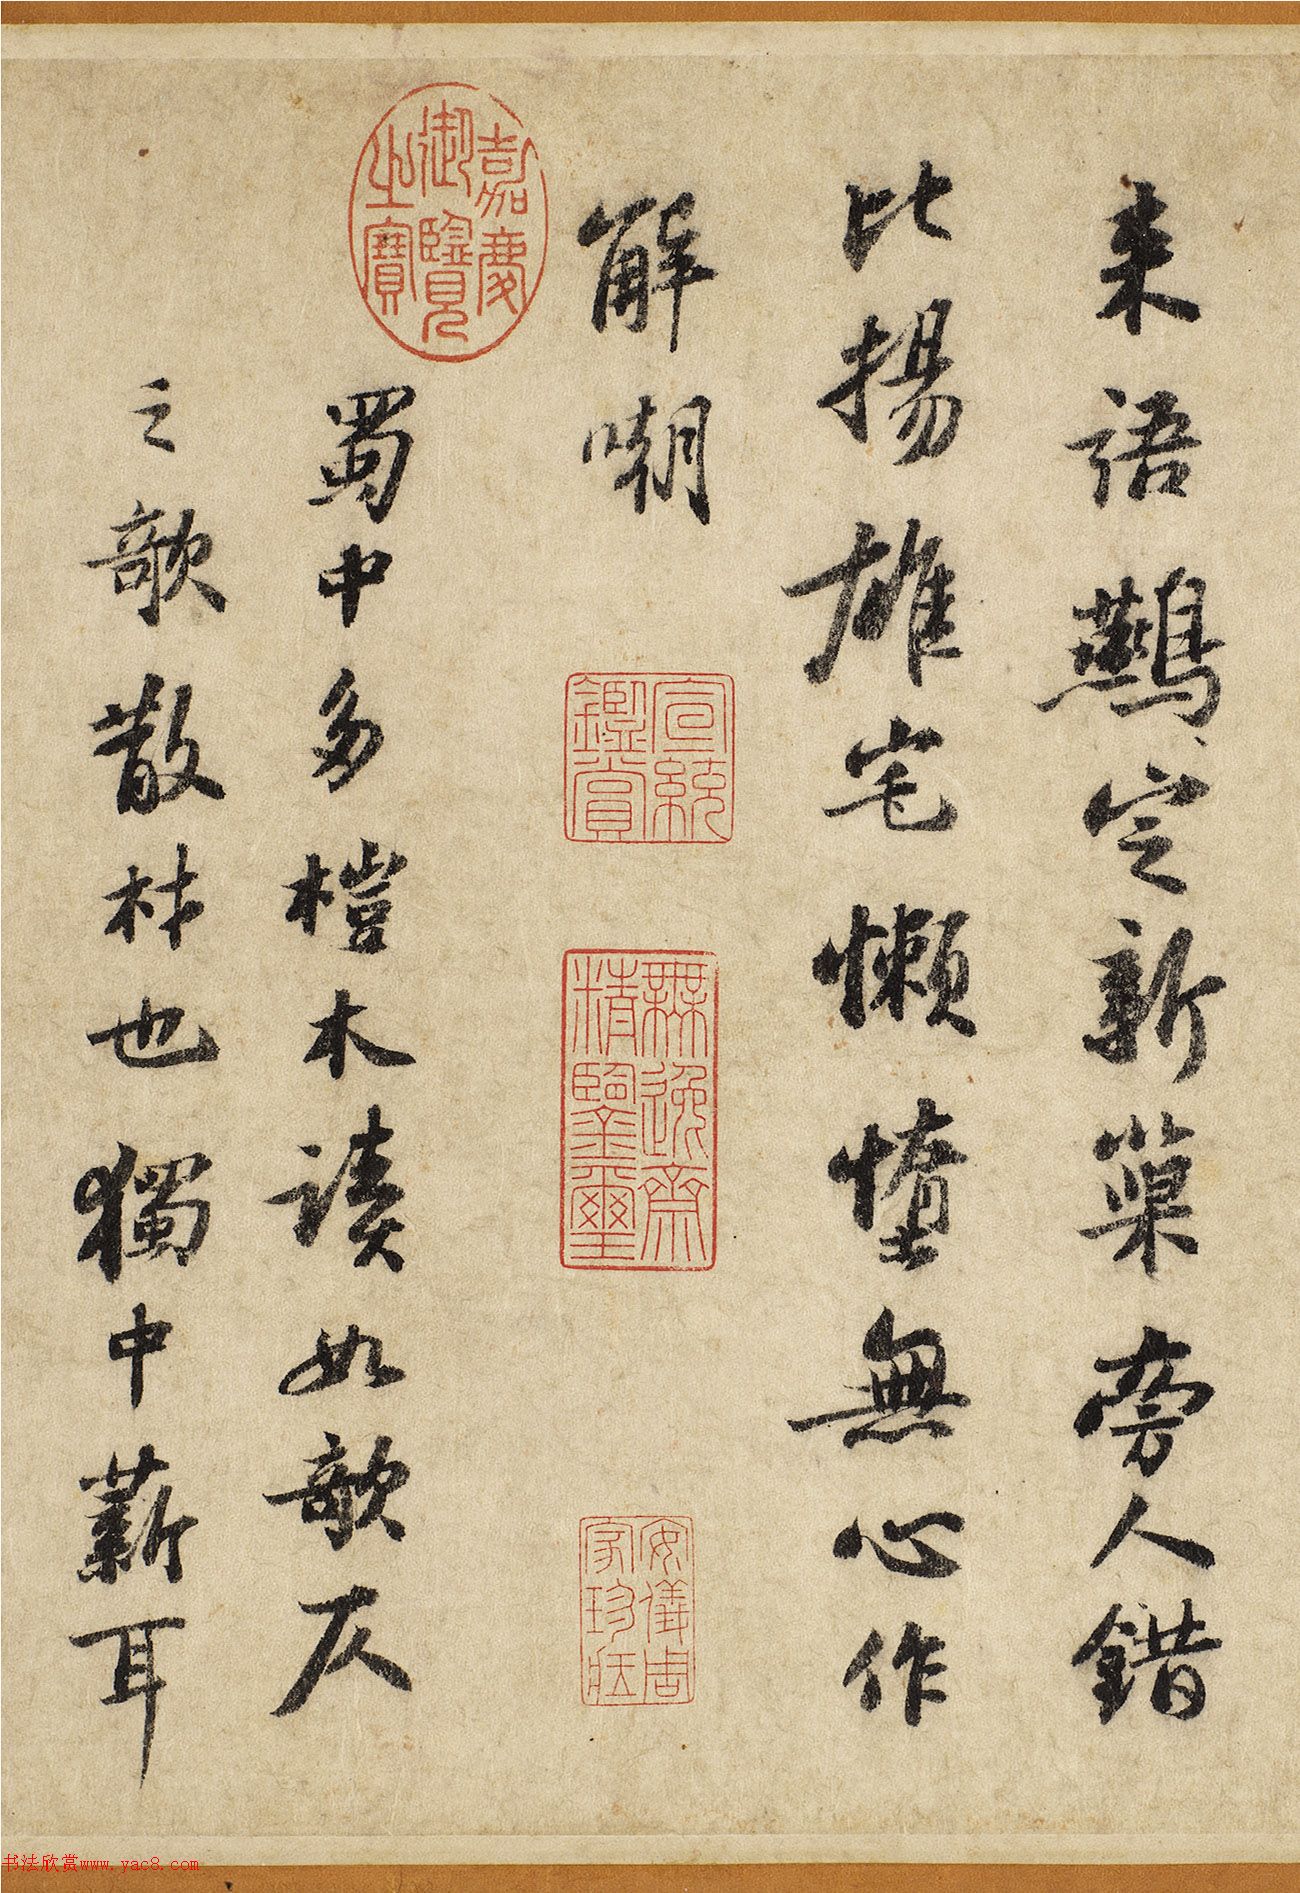 来語鷰定新巢旁人錯
比揚雄宅懶惰無心作
解嘲
嘉慶御覽之寶
宣統鑑賞
無逸齋精鑒璽
安儀周家珍藏
蜀中多榿木讀如欹仄
之欹散材也獨中薪耳
书法欣赏www.yac8.com